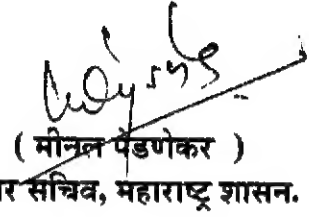 ( मीनल पेडणेकर )
र सचिव, महाराष्ट्र शासन.